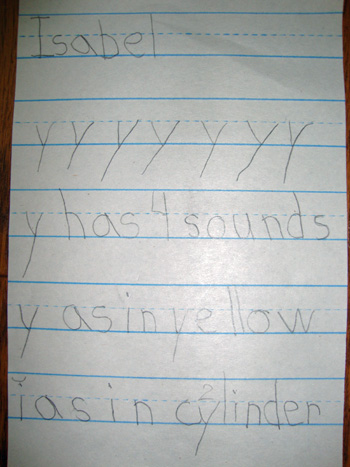 Isabel
y y y y y y y
y has 4 sounds
y as in yellow
ĭ as in cy²linder